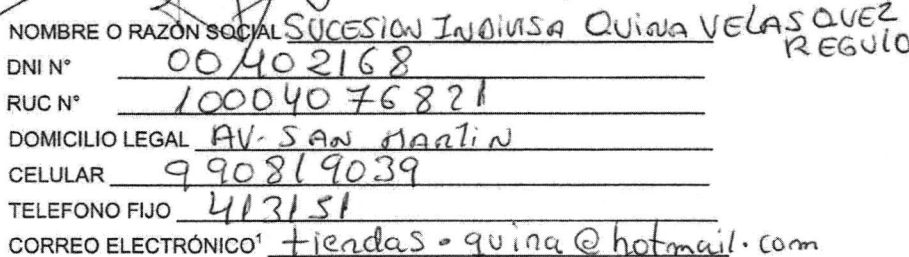 NOMBRE O RAZÓN SOCIAL SUCESION INDIVISA QUINA VELASQUEZ
REGULO
DNI N° 00402168
RUC N° 10004076821
DOMICILIO LEGAL AV. SAN MARTIN
CELULAR 990819039
TELEFONO FIJO 413151
CORREO ELECTRÓNICO¹ tiendas.quina@hotmail.com